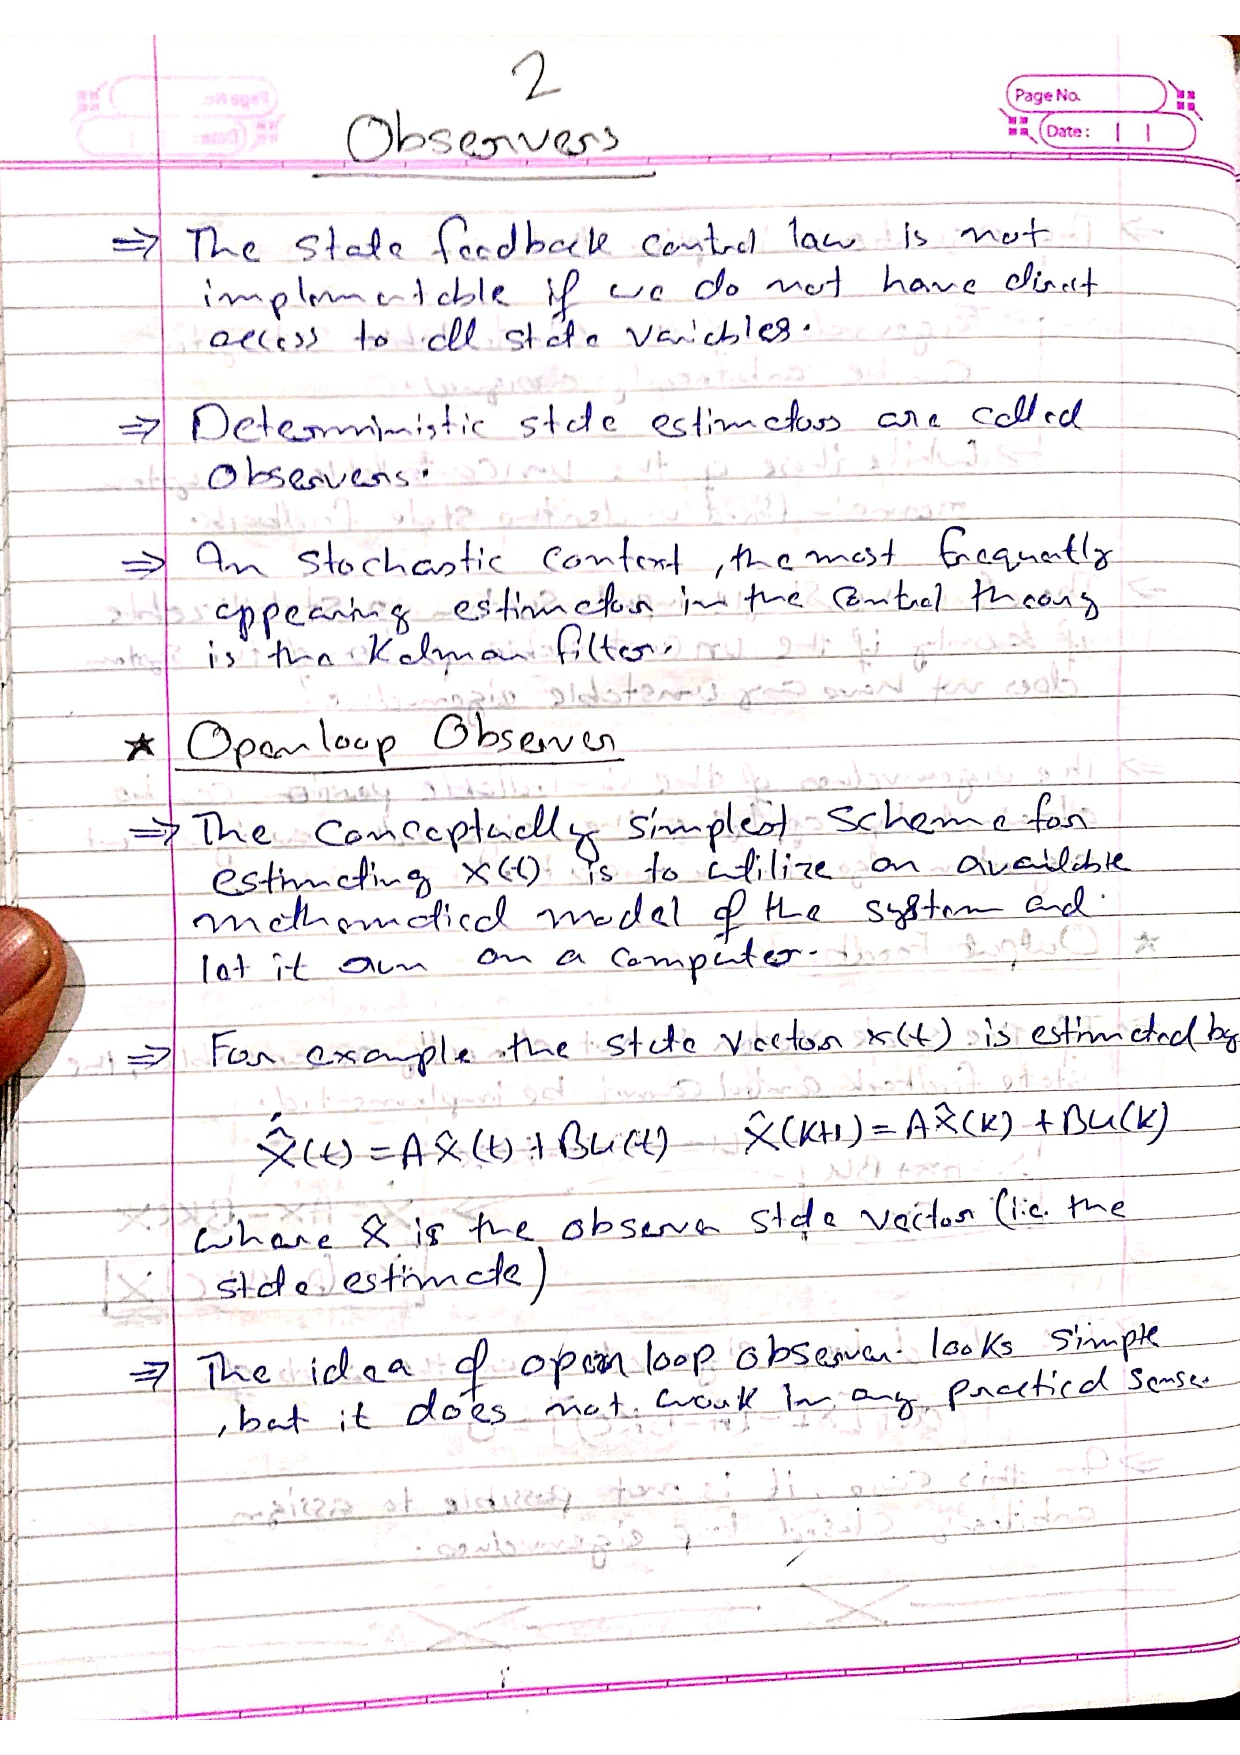 2
Observers
Page No.
Date :
⇒ The state feedback control law is not
implementable if we do not have direct
access to all state variables.
⇒ Deterministic state estimators are called
Observers.
⇒ In stochastic context, the most frequently
appearing estimator in the control theory
is the Kalman filter.
★ Open loop Observer
⇒ The conceptually simplest scheme for
estimating x(t) is to utilize an available
mathematical model of the system and
let it run on a computer.
⇒ For example the state vector x(t) is estimated by
x̂̇(t) = Ax̂(t) + Bu(t) x̂(k+1) = Ax̂(k) + Bu(k)
where x̂ is the observer state vector (i.e. the
state estimate)
⇒ The idea of open loop observer looks simple
, but it does not work in any practical sense.